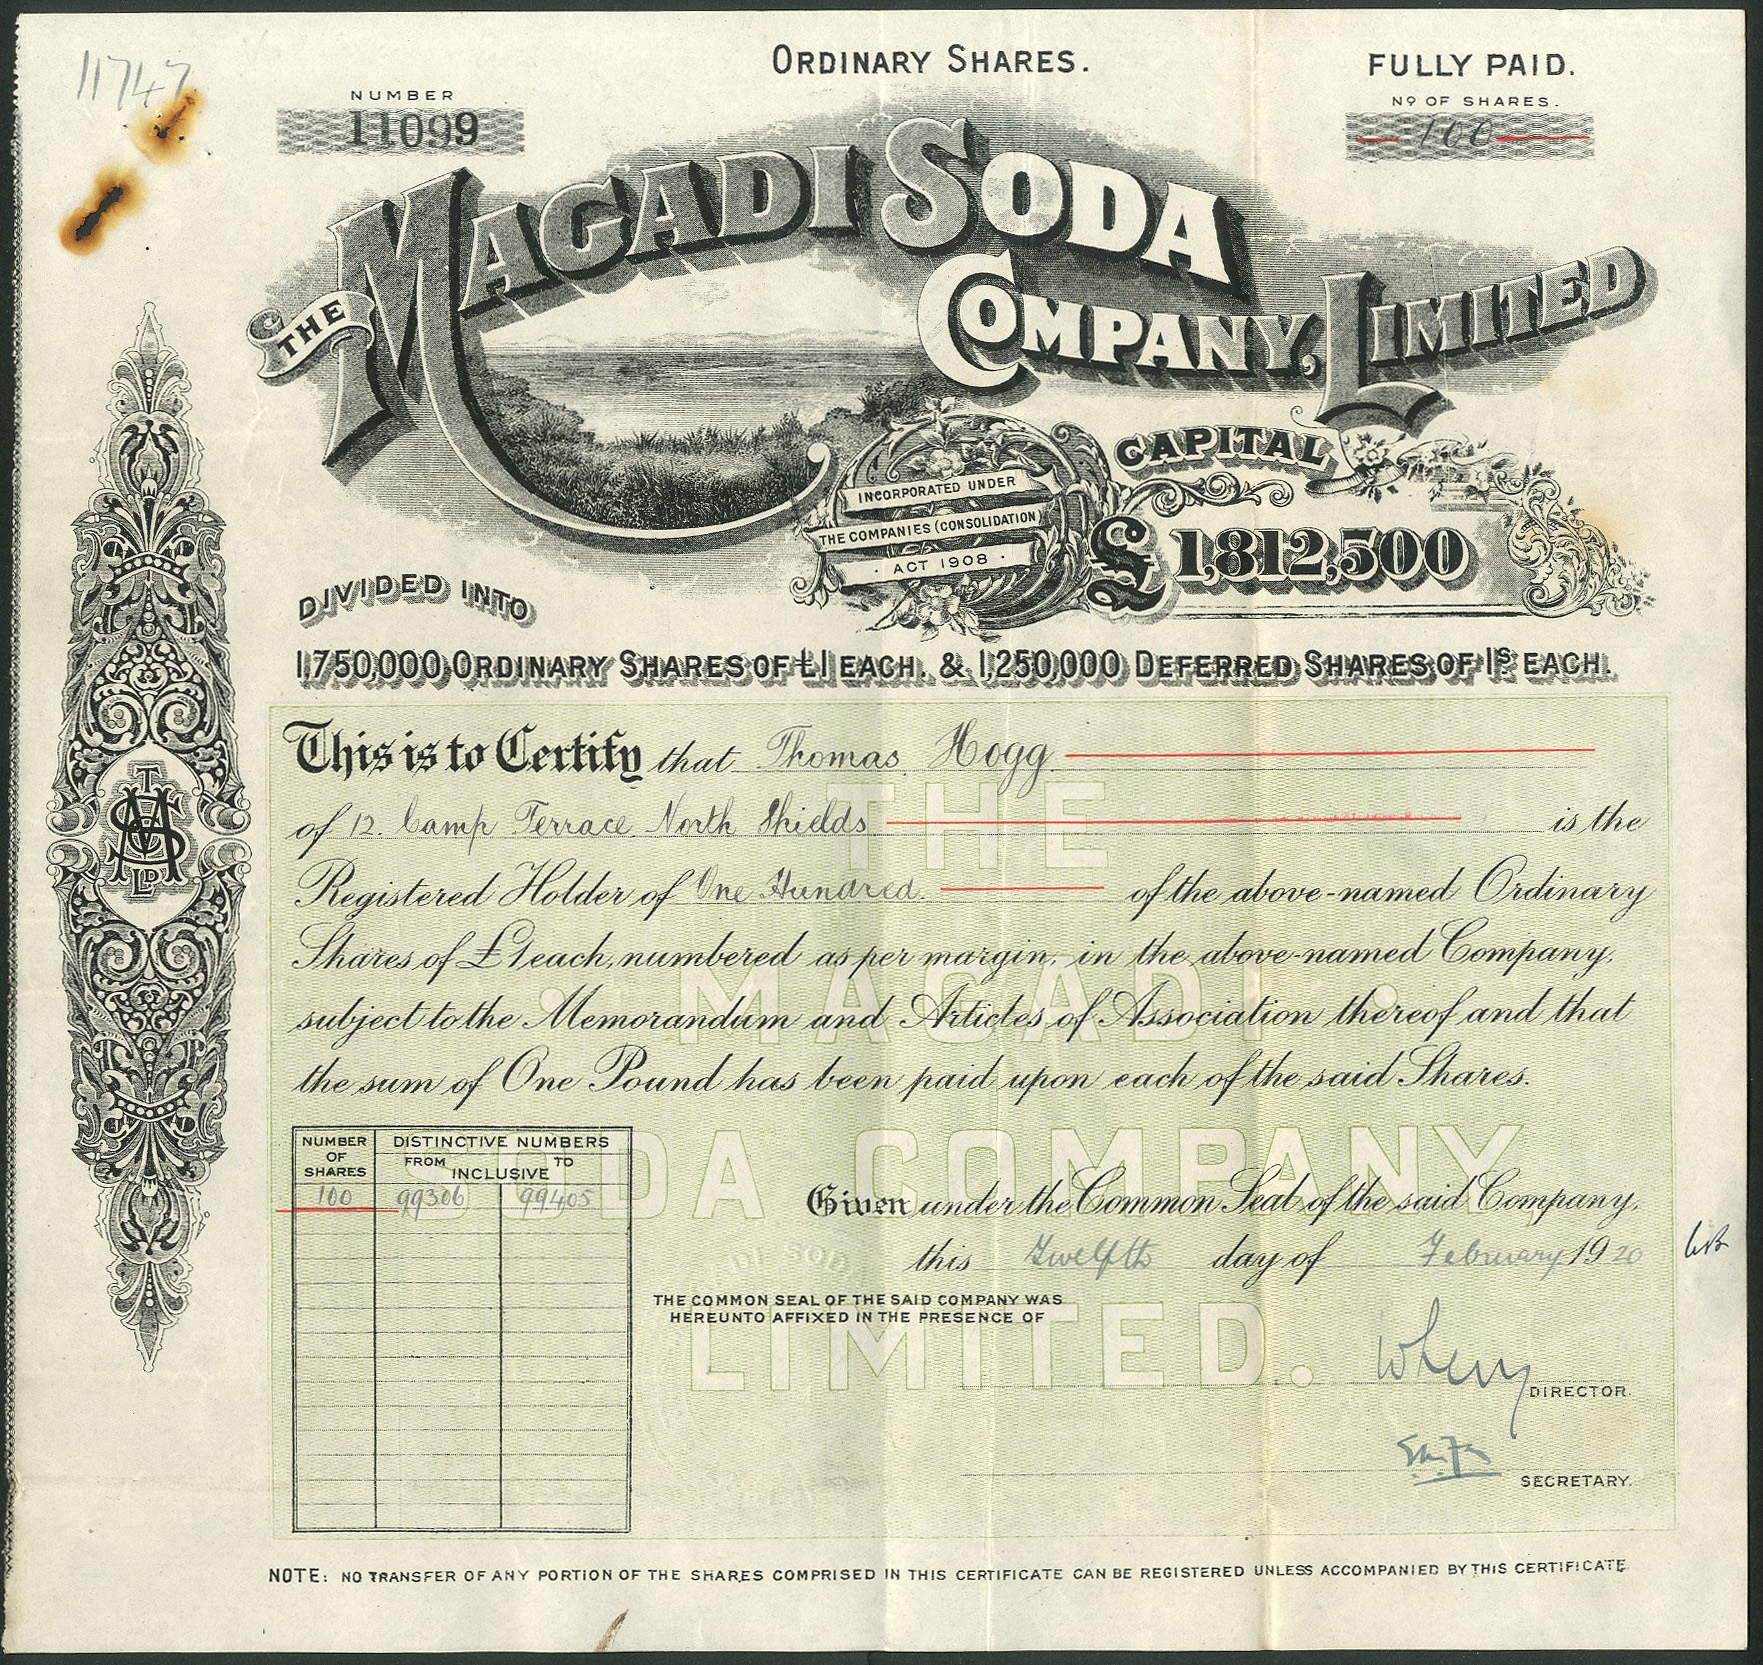 11747
ORDINARY SHARES.
FULLY PAID.
NUMBER
11099
Nº OF SHARES.
100
THE MAGADI SODA
COMPANY, LIMITED
CAPITAL
£1,812,500
INCORPORATED UNDER
THE COMPANIES (CONSOLIDATION)
ACT 1908
DIVIDED INTO
1,750,000 ORDINARY SHARES OF £1 EACH. & 1,250,000 DEFERRED SHARES OF 1s EACH.
This is to Certify that Thomas Hogg
of 12. Camp Terrace North Shields is the
Registered Holder of One Hundred. of the above-named Ordinary
Shares of £1 each, numbered as per margin, in the above-named Company,
subject to the Memorandum and Articles of Association thereof and that
the sum of One Pound has been paid upon each of the said Shares.
THE
MAGADI
SODA COMPANY
LIMITED.
NUMBER OF SHARES
DISTINCTIVE NUMBERS
FROM INCLUSIVE TO
100 99306 99405
Given under the Common Seal of the said Company,
this Twelfth day of February 1920
THE COMMON SEAL OF THE SAID COMPANY WAS
HEREUNTO AFFIXED IN THE PRESENCE OF
DIRECTOR.
SECRETARY.
NOTE: NO TRANSFER OF ANY PORTION OF THE SHARES COMPRISED IN THIS CERTIFICATE CAN BE REGISTERED UNLESS ACCOMPANIED BY THIS CERTIFICATE.